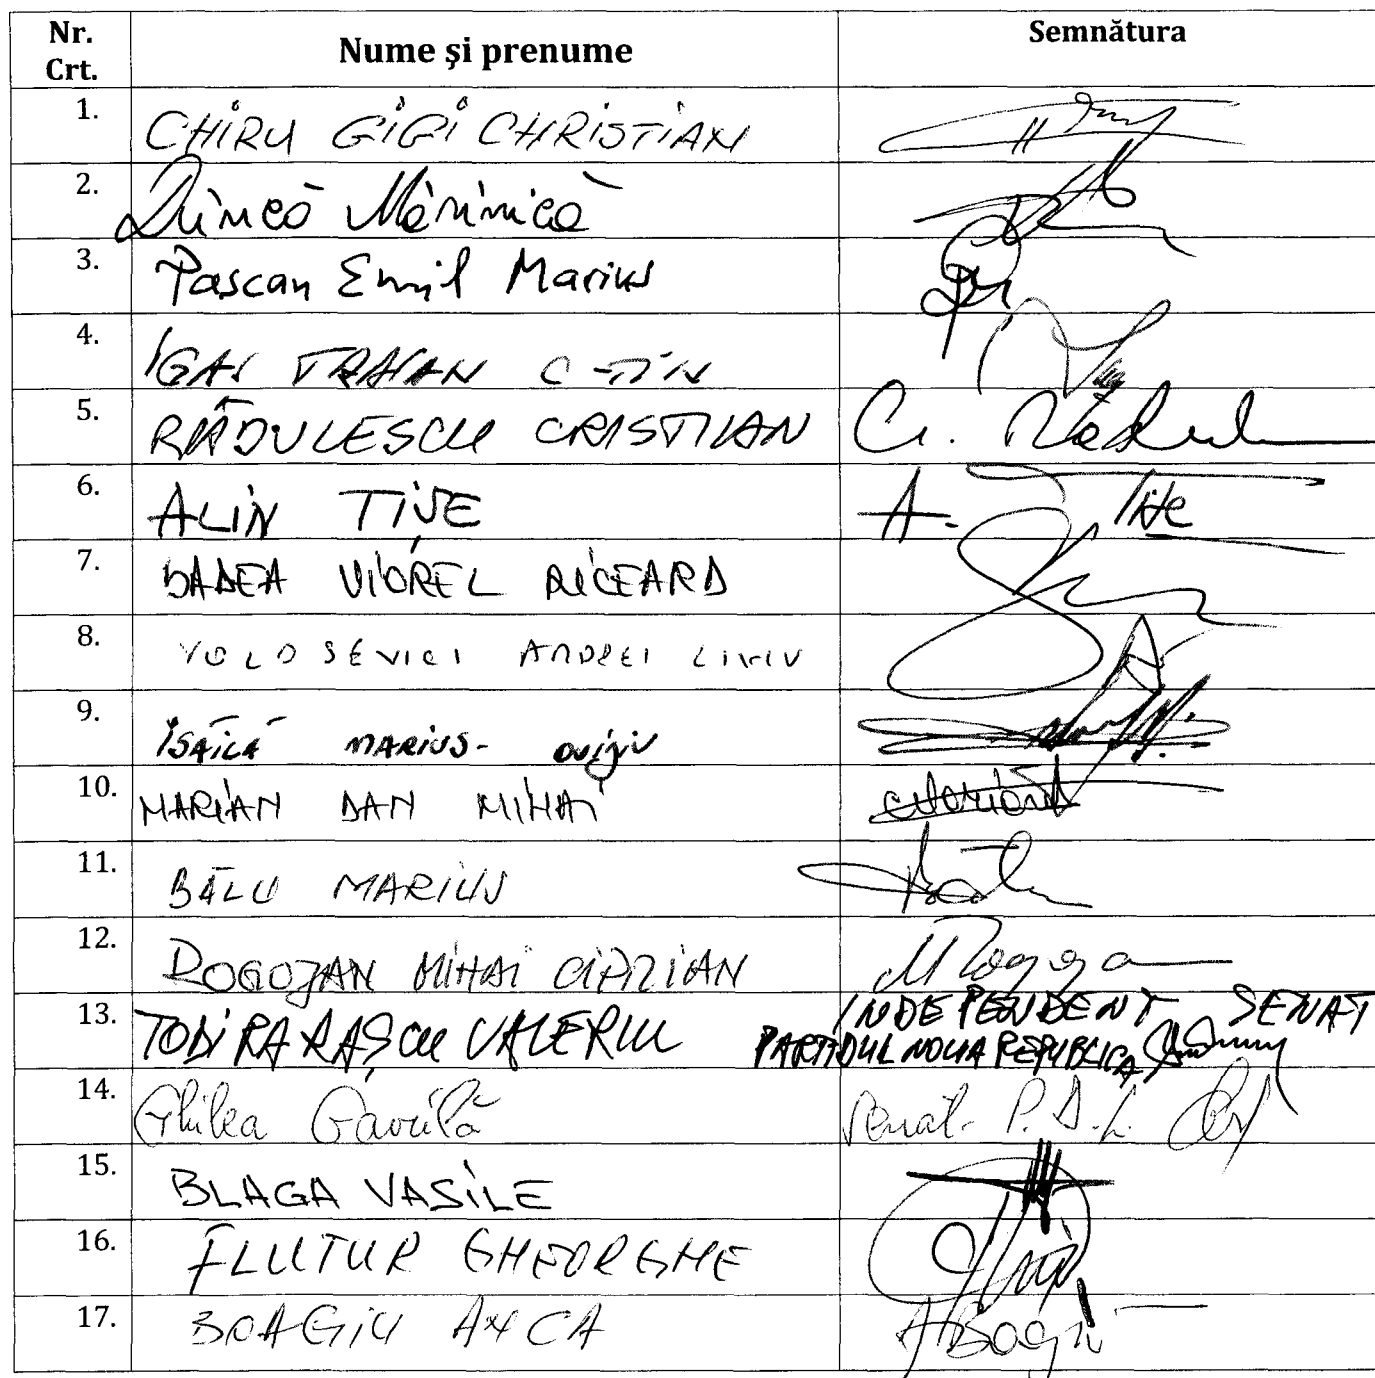 Nr. Crt. Nume și prenume Semnătura
1. CHIRU GIGI CHRISTIAN
2. Dincă Mărinică
3. Pascan Emil Marius
4. IGAS TRAIAN C-TIN
5. RĂDULESCU CRISTIAN Cr. Rădul
6. ALIN TIȘE A. Tișe
7. BADEA VIOREL RICEARD
8. VOLOSEVICI ANDREI LIVIU
9. ISĂILĂ MARIUS-OVIDIU
10. MARIAN DAN MIHAI
11. BĂLU MARIUS
12. ROGOJAN MIHAI CIPRIAN MRogojan
13. TODIRARAȘCU VALERIU INDEPENDENT SENAT
PARTIDUL NOUA REPUBLICA
14. Ghilea Gavrilă Senat- P.D.L.
15. BLAGA VASILE
16. FLUTUR GHEORGHE
17. BOAGIU ANCA ABoagiu